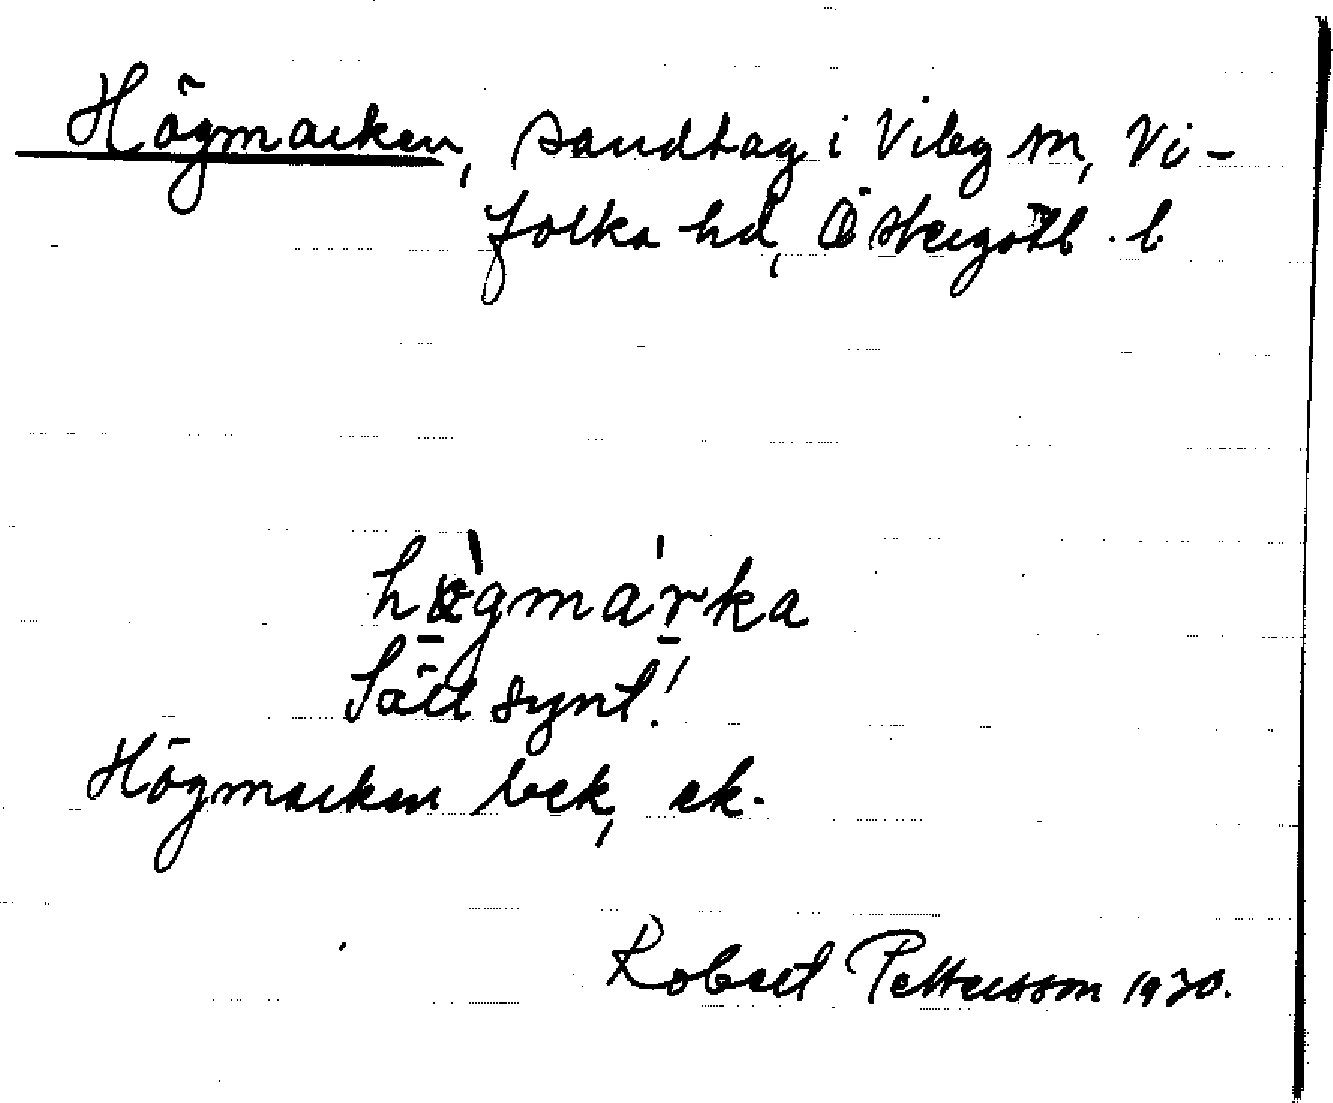 Högmarken, sandtag i Viby sn, Vi-
folka hd, Östergötl. l.
högmarka
Sällsynt!
Högmarken bek, ek.
Robert Pettersson 1930.